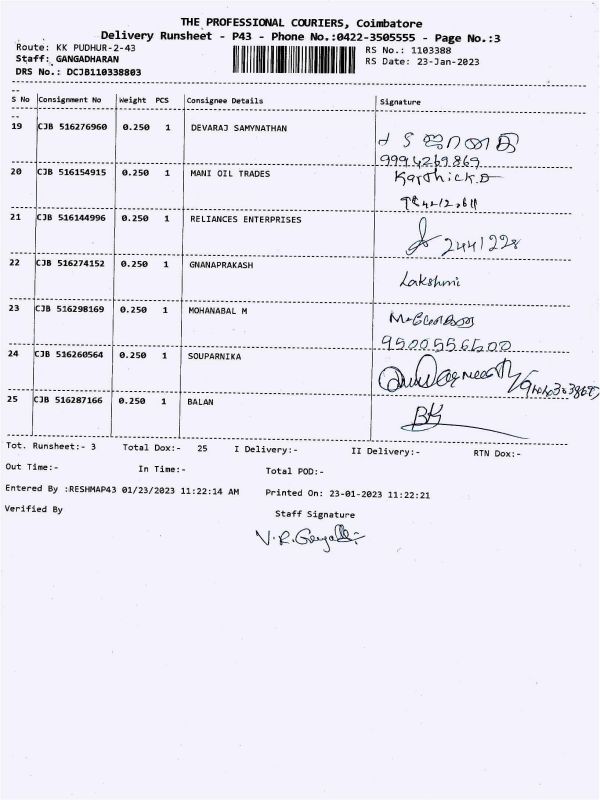 THE PROFESSIONAL COURIERS, Coimbatore
Delivery Runsheet - P43 - Phone No.:0422-3505555 - Page No.:3
Route: KK PUDHUR-2-43 RS No.: 1103388
Staff: GANGADHARAN RS Date: 23-Jan-2023
DRS No.: DCJB110338803
S No Consignment No Weight PCS Consignee Details Signature
19 CJB 516276960 0.250 1 DEVARAJ SAMYNATHAN
9994269869
20 CJB 516154915 0.250 1 MANI OIL TRADES Karthick.D
21 CJB 516144996 0.250 1 RELIANCES ENTERPRISES
2441228
22 CJB 516274152 0.250 1 GNANAPRAKASH
Lakshmi
23 CJB 516298169 0.250 1 MOHANABAL M
9500556500
24 CJB 516260564 0.250 1 SOUPARNIKA
25 CJB 516287166 0.250 1 BALAN
Tot. Runsheet:- 3 Total Dox:- 25 I Delivery:- II Delivery:- RTN Dox:-
Out Time:- In Time:- Total POD:-
Entered By :RESHMAP43 01/23/2023 11:22:14 AM Printed On: 23-01-2023 11:22:21
Verified By Staff Signature